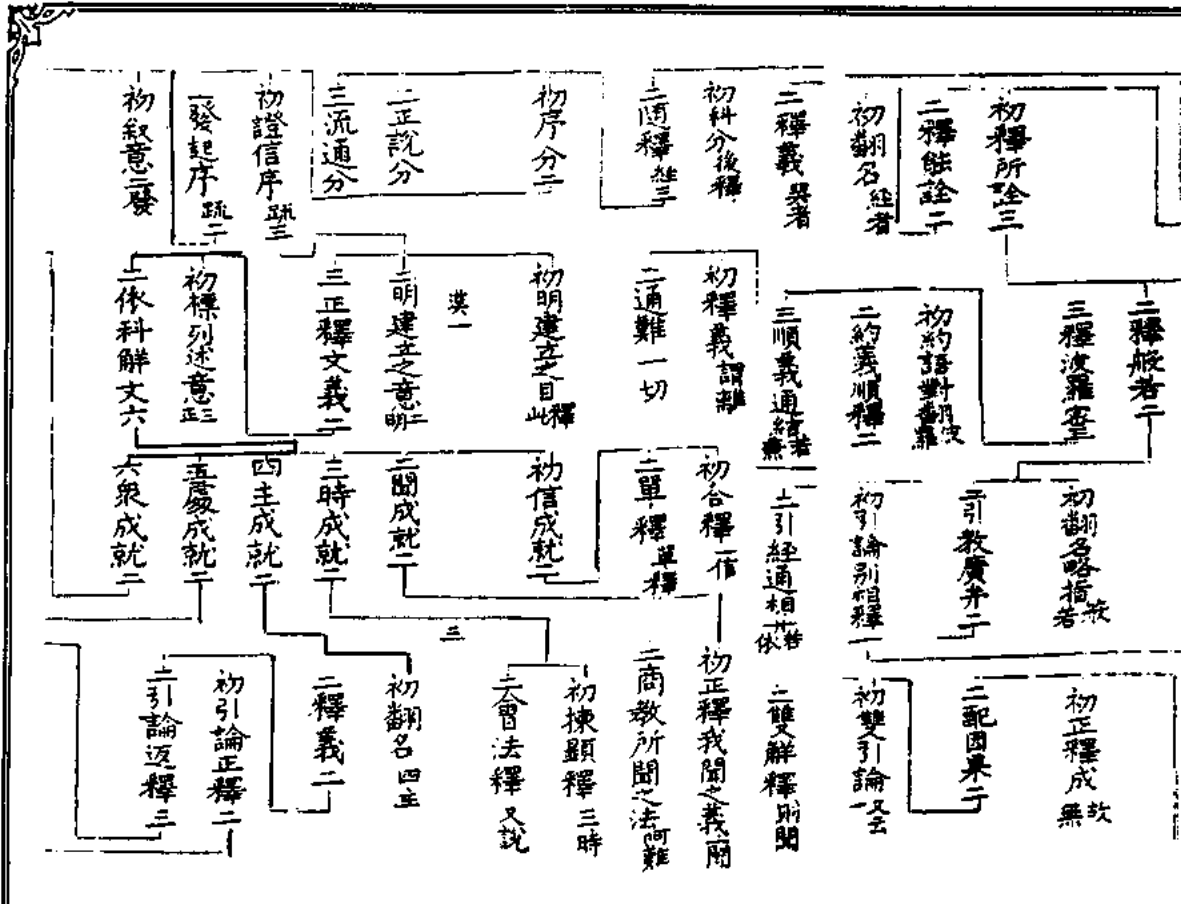 初釋所詮三
二釋能詮二
初翻名 經者
二釋義 契者
初科分後釋
二隨釋 經三
初序分二
二正說分
三流通分
初證信序 疏三
二發起序 疏二
初敘意二發
二釋般若二
三釋波羅蜜三
初約語對翻 波羅
二約義順釋二
三順義通結 若無
初釋義 謂離
二通難 一切
初明建立之目 此釋
漢一
二明建立之意 明二
三正釋文義二
初標列述意 正三
二依科解文六
初翻名略指 般若
二引教廣弁二
初引論別相釋一
二引經通相
初合釋 一信
二單釋 單釋
初信成就二
二聞成就二
三時成就二
四主成就二
五處成就二
六衆成就二
初正釋成 故無
二配因果二
初雙引論 又云
二雙解釋 則聞
初正釋我聞之義
二商教所聞之法 阿難
初揀顯釋 三時
二會法釋 又說
三
初翻名 四主
二釋義二
初引論正釋二
二引論返釋三